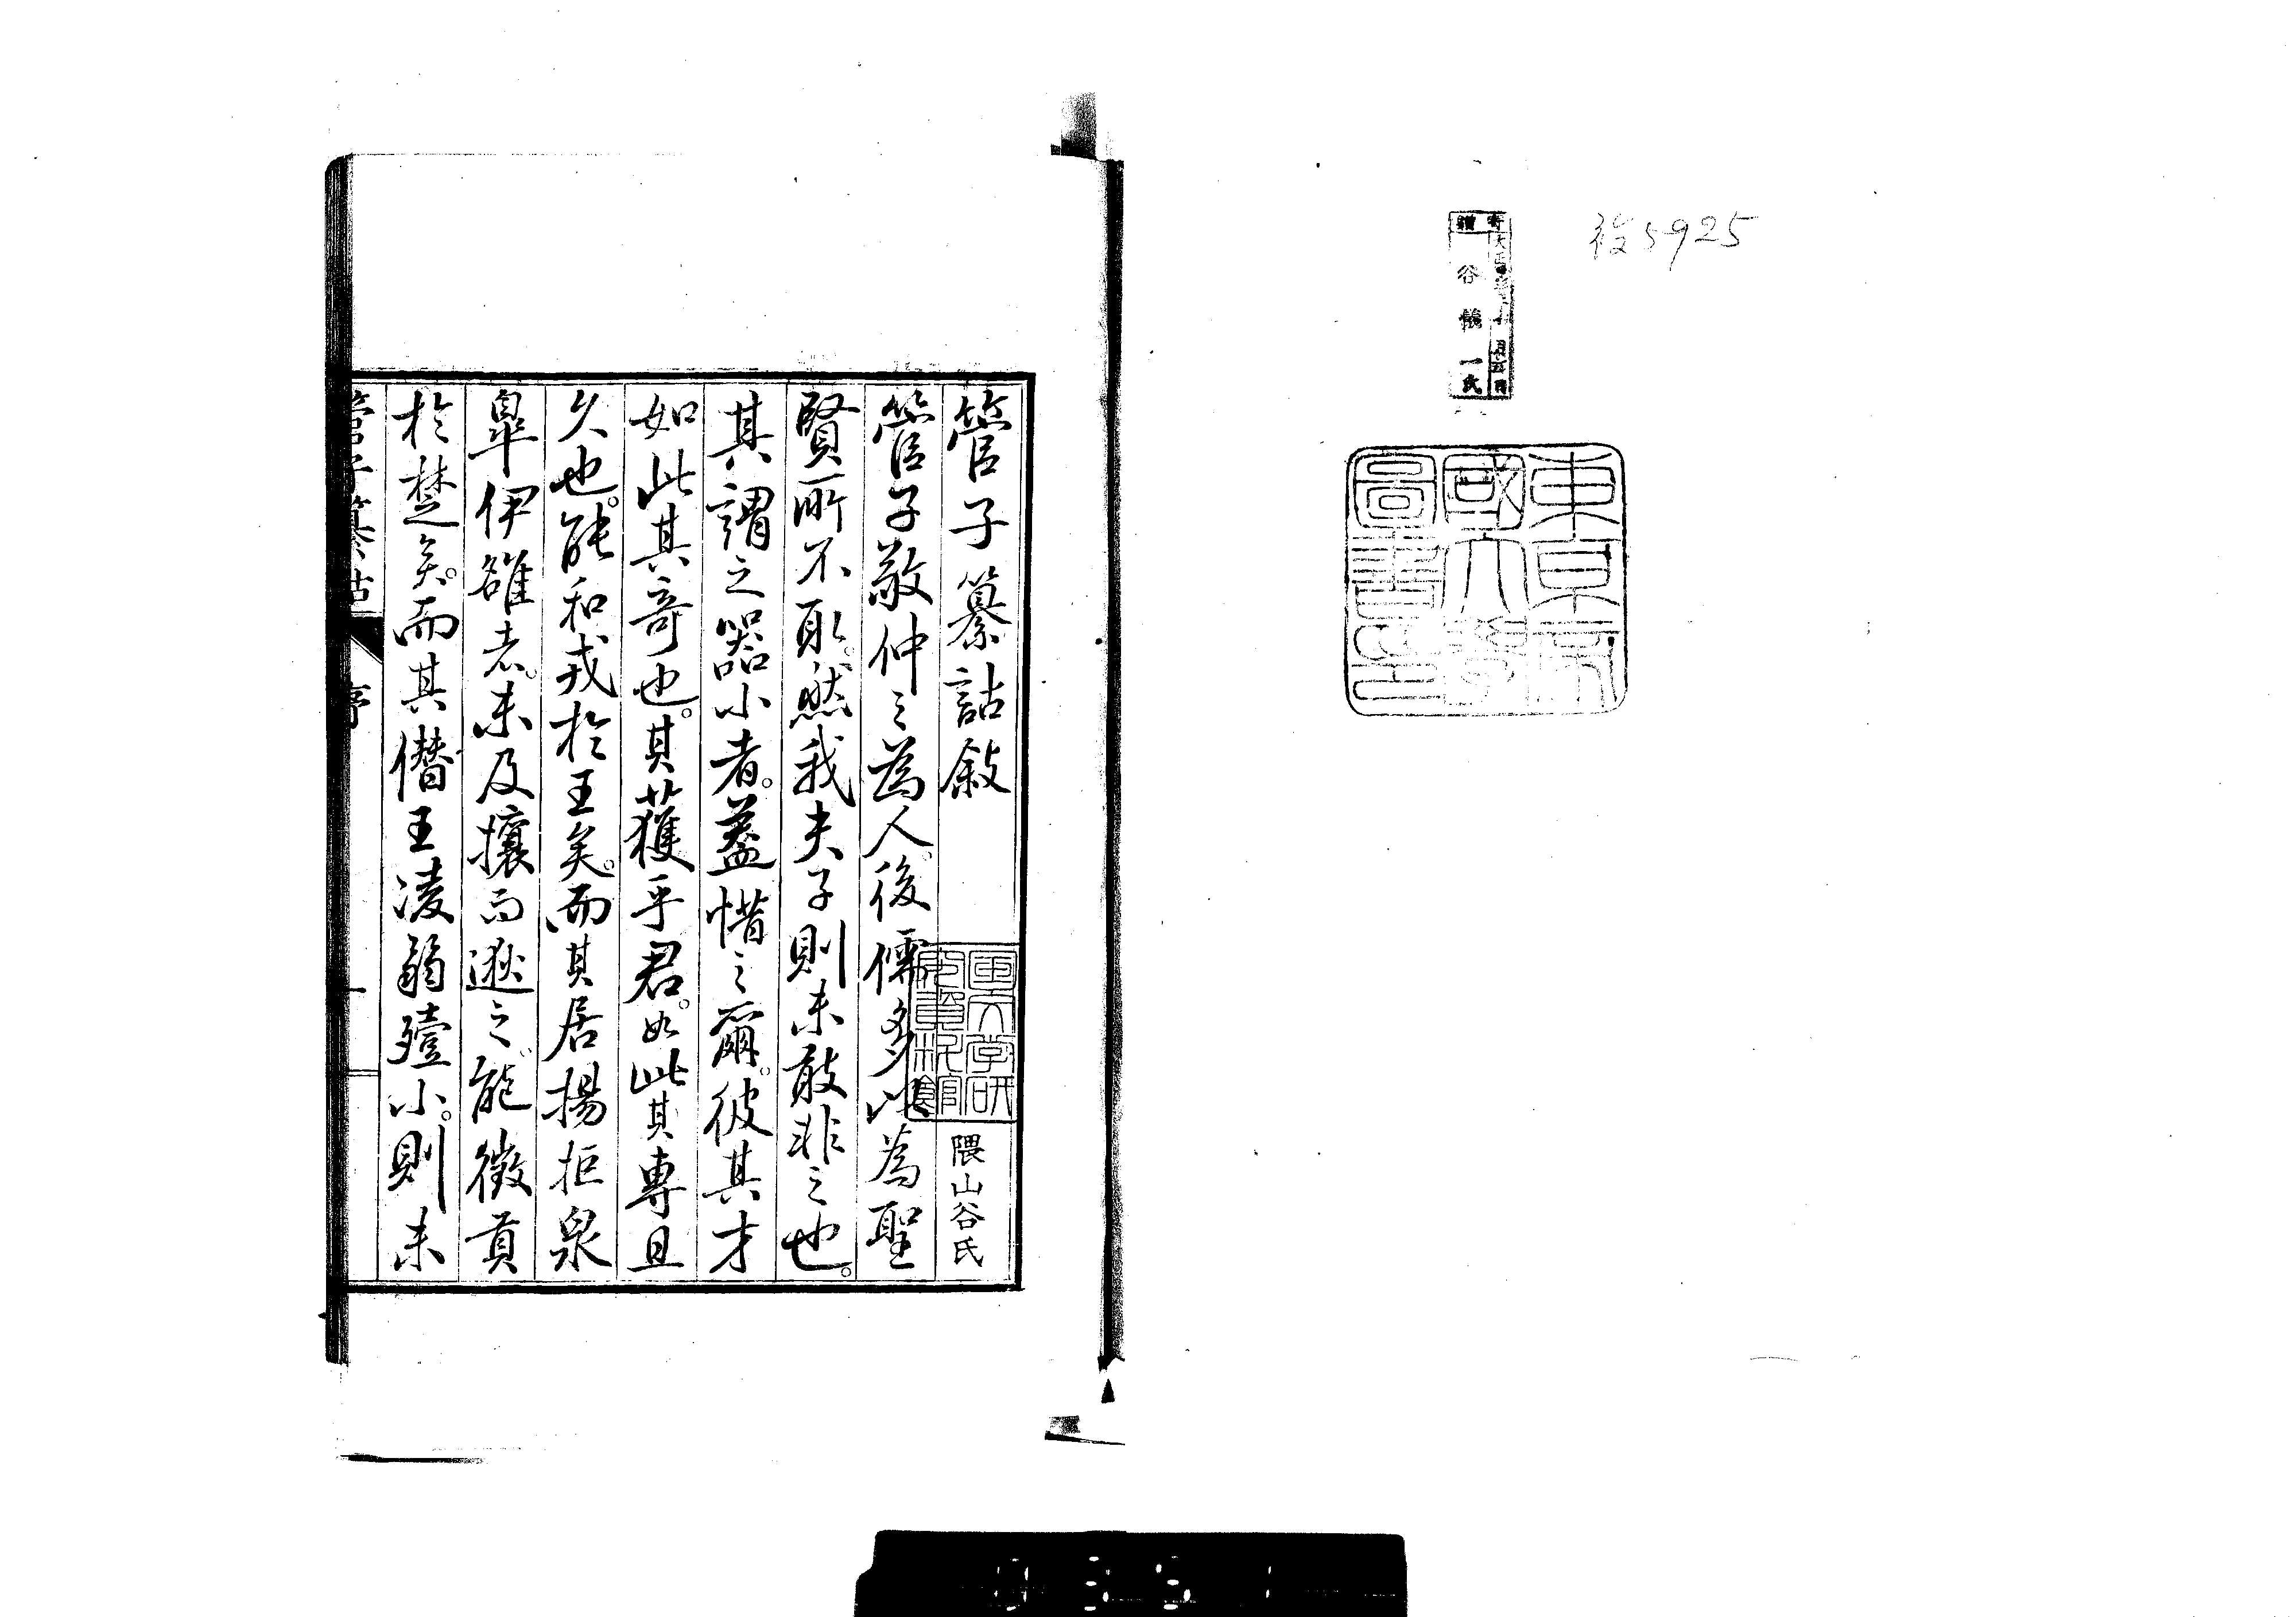 複5925
寄贈
大正
谷儀一氏
東京帝
國大學
圖書印
管子纂詁敘
隈山谷氏
管子敬仲之為人。後儒多以為聖
賢所不取。然我夫子則未敢非之也。
其謂之器小者。蓋惜之爾。彼其才
如此其奇也。其獲乎君。如此其專且
久也。能和戎於王矣。而其居揚拒泉
皐伊雒者。未及攘而逖之。能徵貢
於楚矣。而其僭王凌弱殪小。則未
管子纂詁
序
一